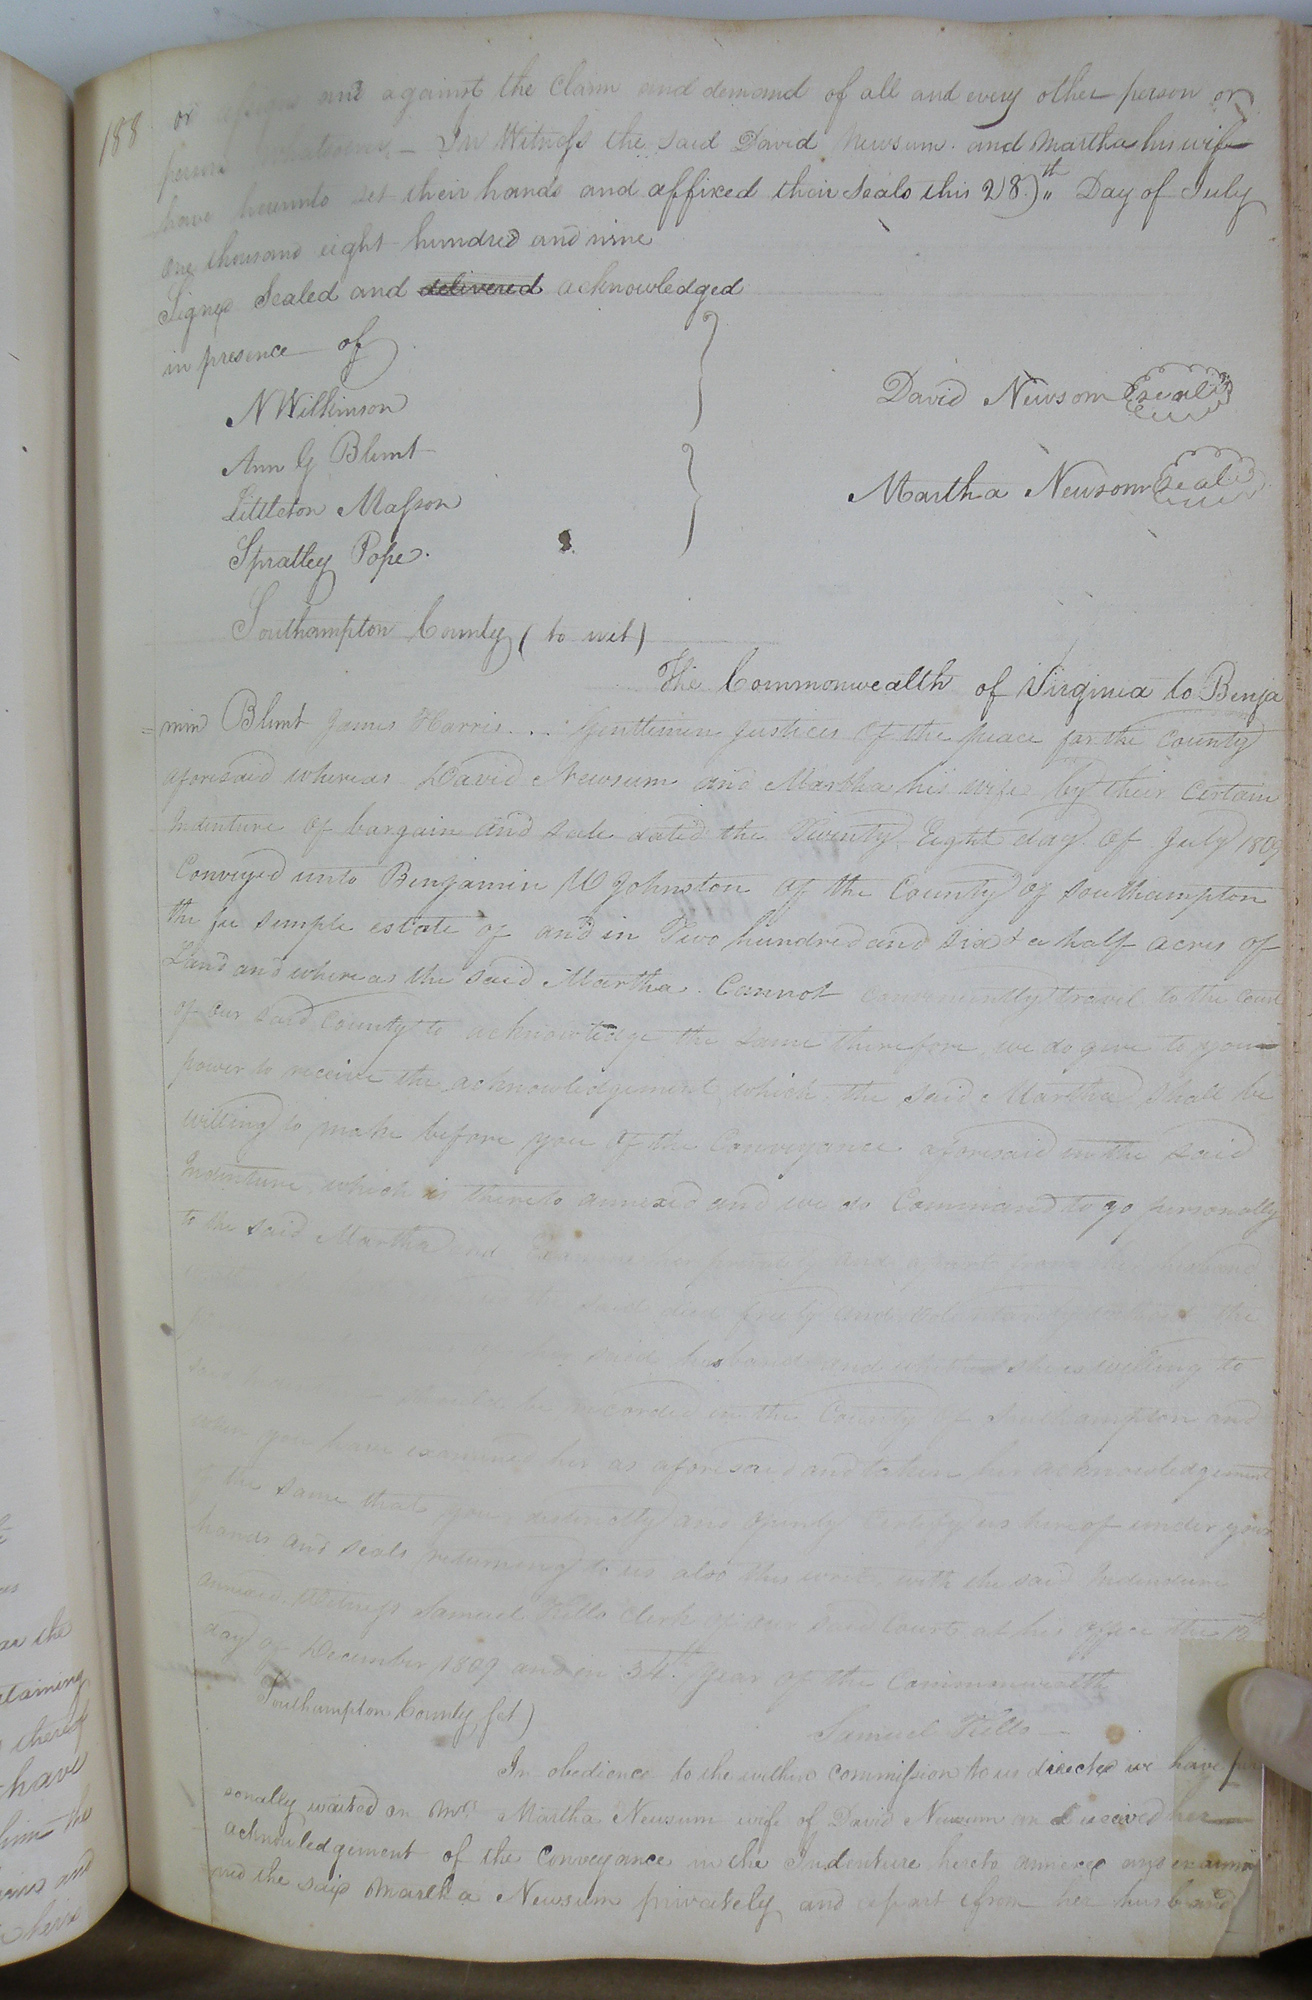 188
or assigns and against the Claim and demand of all and every other person or
persons whatsoever, — In Witness the said David Newsum and Martha his wife
have hereunto set their hands and affixed their Seals this 28th Day of July
One thousand eight hundred and nine
Signed Sealed and delivered acknowledged
in presence of
N Wilkinson
David Newsom Seal
Ann G Blunt
Littleton Masson
Martha Newsom Seal
Spratley Pope.
Southampton County (to wit)
The Commonwealth of Virginia to Benja
=min Blunt James Harris . . . Gentlemen Justices Of the peace for the County
aforesaid whereas David Newsum and Martha his wife by their Certain
Indenture Of bargain and Sale dated the Twenty Eight day Of July 1809
Conveyed unto Benjamin W Johnston Of the County Of Southampton
the fee simple estate of and in Two hundred and six & a half acres of
Land and whereas the said Martha Cannot conveniently travel to the Court
of our said County to acknowledge the same therefore we do give to you
power to receive the acknowledgement which the said Martha Shall be
willing to make before you Of the Conveyance aforesaid in the said
Indenture which is thereto annexed and we do Command to go personally
to the said Martha and Examine her privately and apart from her husband
the said deed freely and voluntarily without the
her said husband and whether she is willing to
said should be recorded in the County Of Southampton and
when you have examined her as aforesaid and taken her acknowledgement
of the same that you distinctly and Openly Certify us hereof under your
hands and seals returning to us also this writ with the said Indenture
annexed. Witness Samuel Kello Clerk Of our said Court at his Office the
day of December 1809 and in 34th Year Of the Commonwealth
Samuel Kello
Southampton County Sct)
In obedience to the within commission to us directed we have per
sonally waited on Mrs Martha Newsum wife of David Newsum and received her
acknowledgement of the Conveyance in the Indenture hereto annexed and exami
ned the said Martha Newsum privately and apart from her husband